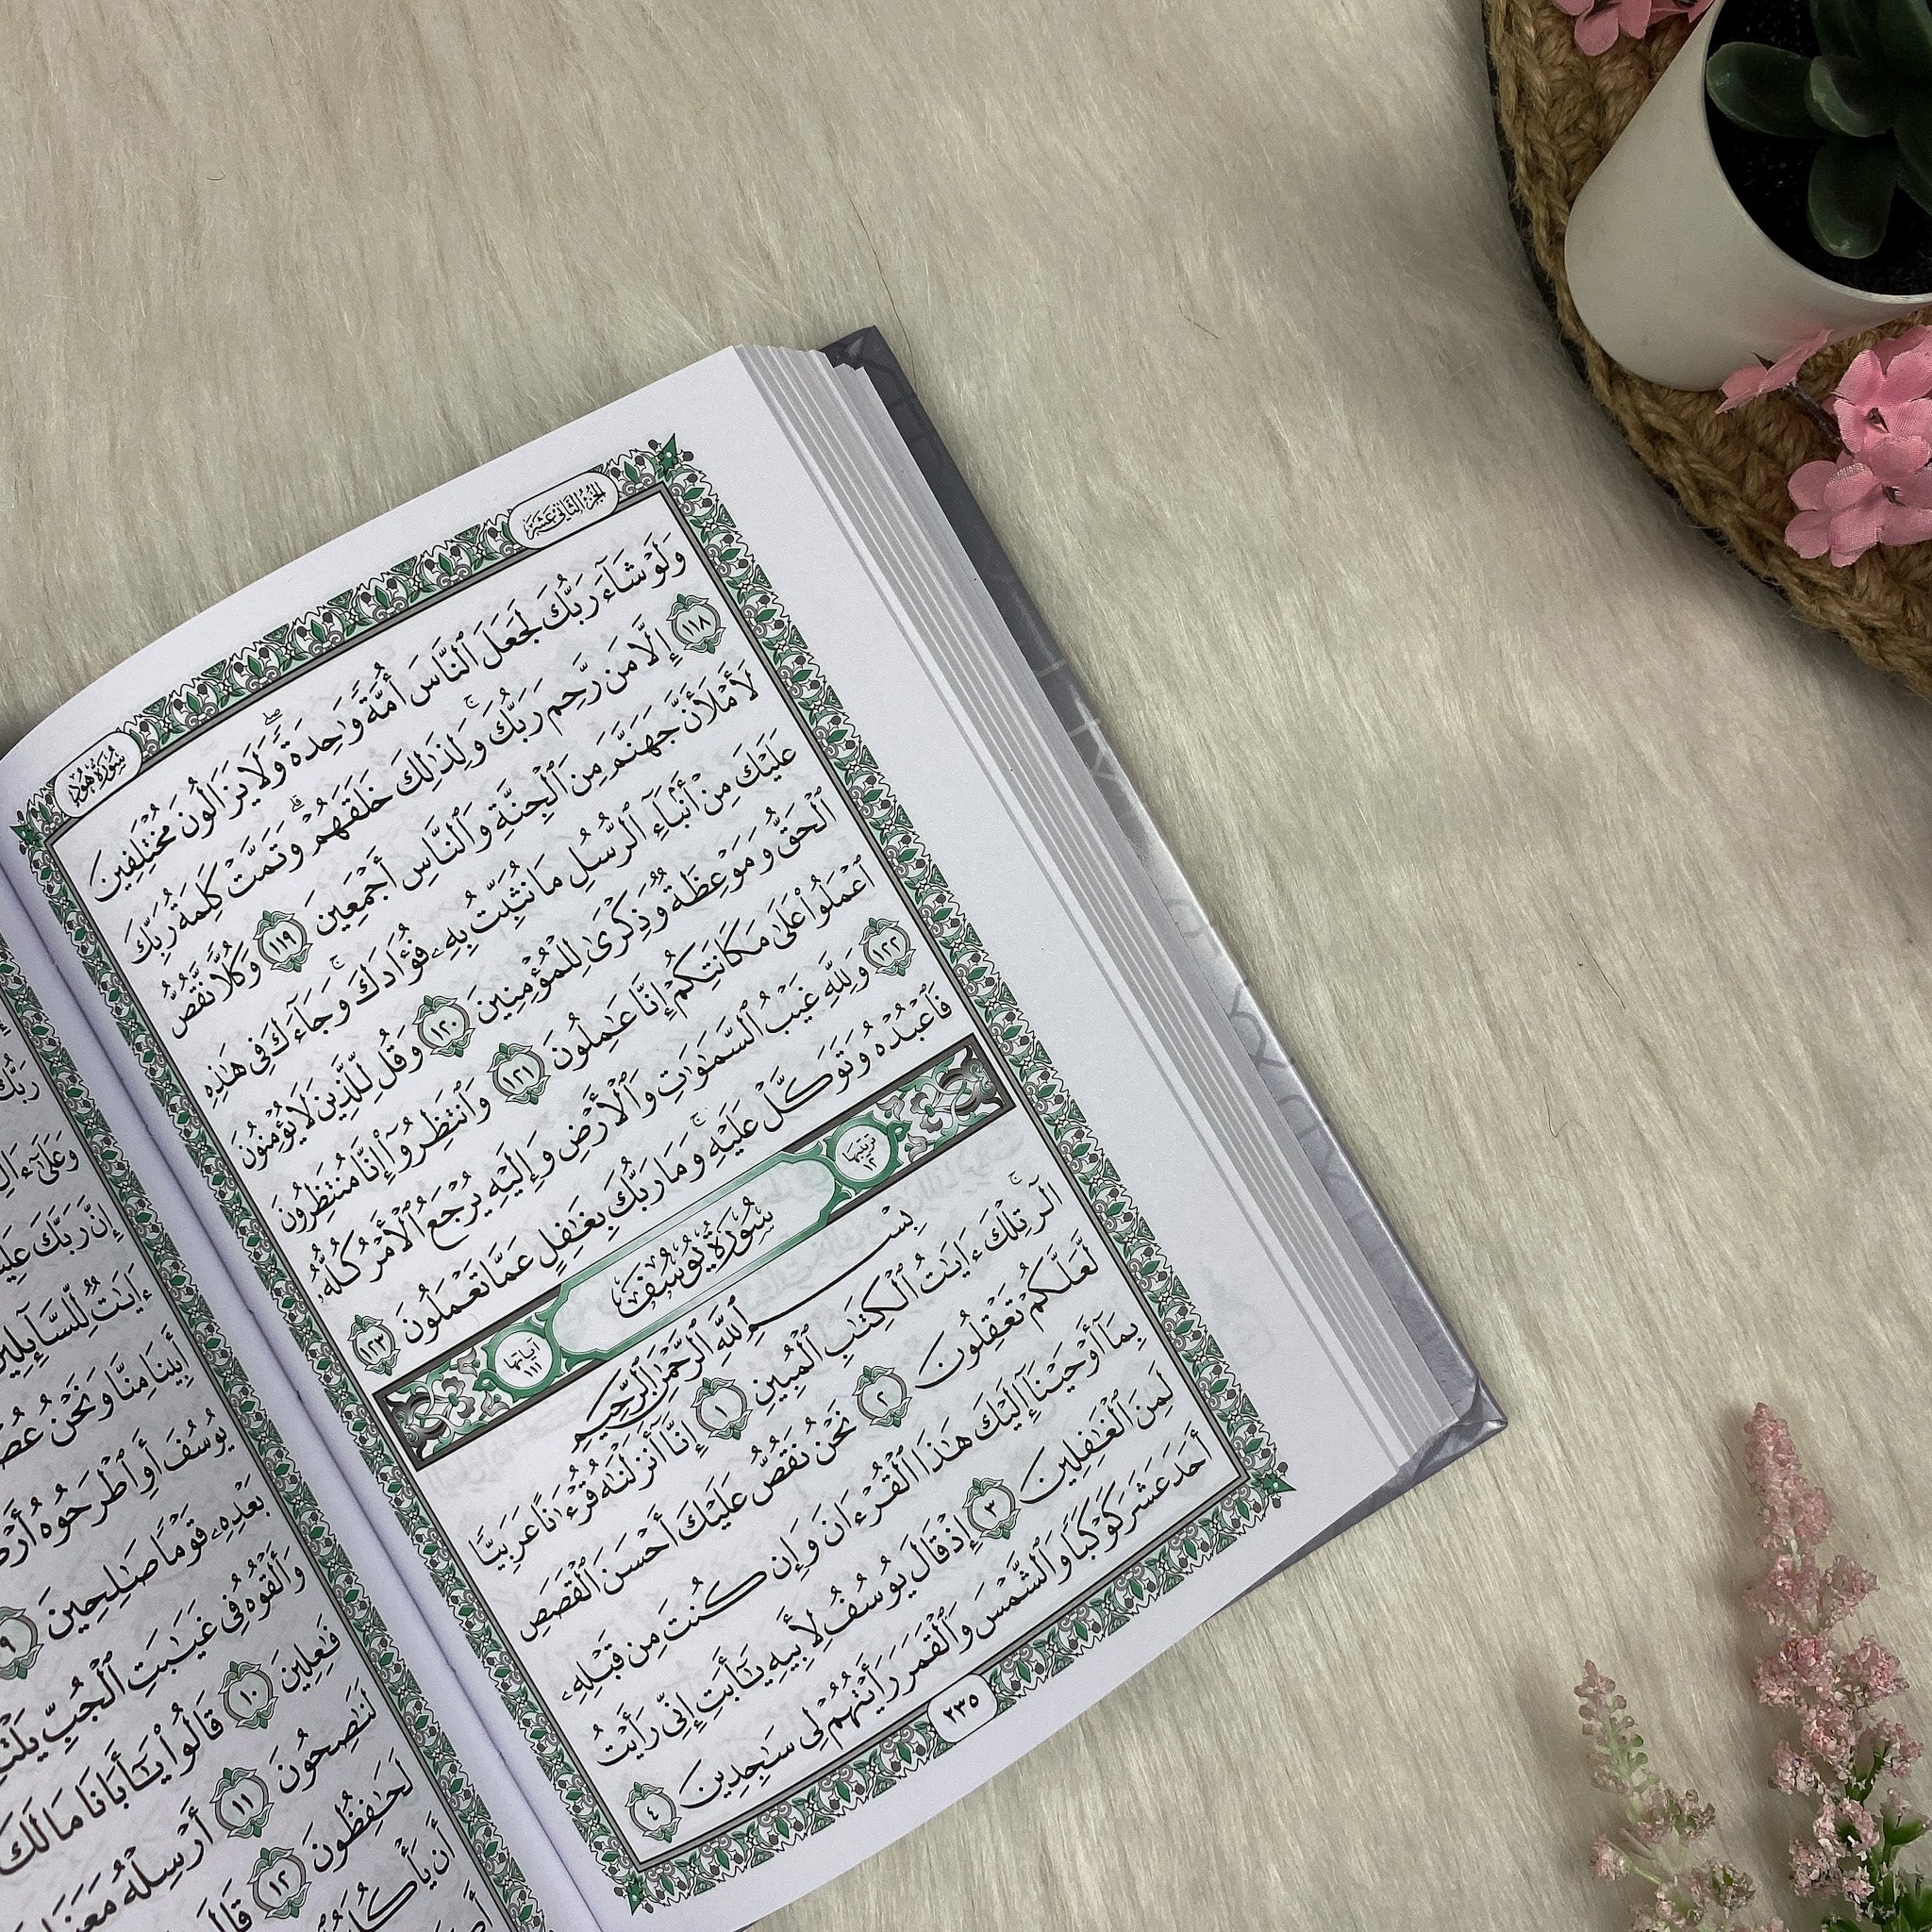 الجزء الثاني عشر
سورة هود
وَلَوْ شَآءَ رَبُّكَ لَجَعَلَ ٱلنَّاسَ أُمَّةً وَٰحِدَةً ۖ وَلَا يَزَالُونَ مُخْتَلِفِينَ
١١٨ إِلَّا مَن رَّحِمَ رَبُّكَ ۚ وَلِذَٰلِكَ خَلَقَهُمْ ۗ وَتَمَّتْ كَلِمَةُ رَبِّكَ
لَأَمْلَأَنَّ جَهَنَّمَ مِنَ ٱلْجِنَّةِ وَٱلنَّاسِ أَجْمَعِينَ ١١٩ وَكُلًّا نَّقُصُّ
عَلَيْكَ مِنْ أَنۢبَآءِ ٱلرُّسُلِ مَا نُثَبِّتُ بِهِۦ فُؤَادَكَ ۚ وَجَآءَكَ فِى هَٰذِهِ
ٱلْحَقُّ وَمَوْعِظَةٌ وَذِكْرَىٰ لِلْمُؤْمِنِينَ ١٢٠ وَقُل لِّلَّذِينَ لَا يُؤْمِنُونَ
ٱعْمَلُوا۟ عَلَىٰ مَكَانَتِكُمْ إِنَّا عَٰمِلُونَ ١٢١ وَٱنتَظِرُوٓا۟ إِنَّا مُنتَظِرُونَ
١٢٢ وَلِلَّهِ غَيْبُ ٱلسَّمَٰوَٰتِ وَٱلْأَرْضِ وَإِلَيْهِ يُرْجَعُ ٱلْأَمْرُ كُلُّهُۥ
فَٱعْبُدْهُ وَتَوَكَّلْ عَلَيْهِ ۚ وَمَا رَبُّكَ بِغَٰفِلٍ عَمَّا تَعْمَلُونَ ١٢٣
ترتيبها ١٢ سورة يوسف آياتها ١١١
بِسْمِ ٱللَّهِ ٱلرَّحْمَٰنِ ٱلرَّحِيمِ
الٓر ۚ تِلْكَ ءَايَٰتُ ٱلْكِتَٰبِ ٱلْمُبِينِ ١ إِنَّآ أَنزَلْنَٰهُ قُرْءَٰنًا عَرَبِيًّا
لَّعَلَّكُمْ تَعْقِلُونَ ٢ نَحْنُ نَقُصُّ عَلَيْكَ أَحْسَنَ ٱلْقَصَصِ
بِمَآ أَوْحَيْنَآ إِلَيْكَ هَٰذَا ٱلْقُرْءَانَ وَإِن كُنتَ مِن قَبْلِهِۦ
لَمِنَ ٱلْغَٰفِلِينَ ٣ إِذْ قَالَ يُوسُفُ لِأَبِيهِ يَٰٓأَبَتِ إِنِّى رَأَيْتُ
أَحَدَ عَشَرَ كَوْكَبًا وَٱلشَّمْسَ وَٱلْقَمَرَ رَأَيْتُهُمْ لِى سَٰجِدِينَ ٤
٢٣٥
رَبُّكَ
وَعَلَىٰٓ ءَالِ
إِنَّ رَبَّكَ عَلِيمٌ
ءَايَٰتٌ لِّلسَّآئِلِينَ
أَبِينَا مِنَّا وَنَحْنُ
يُوسُفَ أَوِ ٱطْرَحُوهُ
بَعْدِهِۦ قَوْمًا صَٰلِحِينَ ٩
وَأَلْقُوهُ فِى غَيَٰبَتِ ٱلْجُبِّ
فَٰعِلِينَ ١٠ قَالُوا۟ يَٰٓأَبَانَا مَا لَكَ
لَنَٰصِحُونَ ١١ أَرْسِلْهُ مَعَنَا
لَحَٰفِظُونَ ١٢ قَالَ
أَن يَأْكُلَهُ